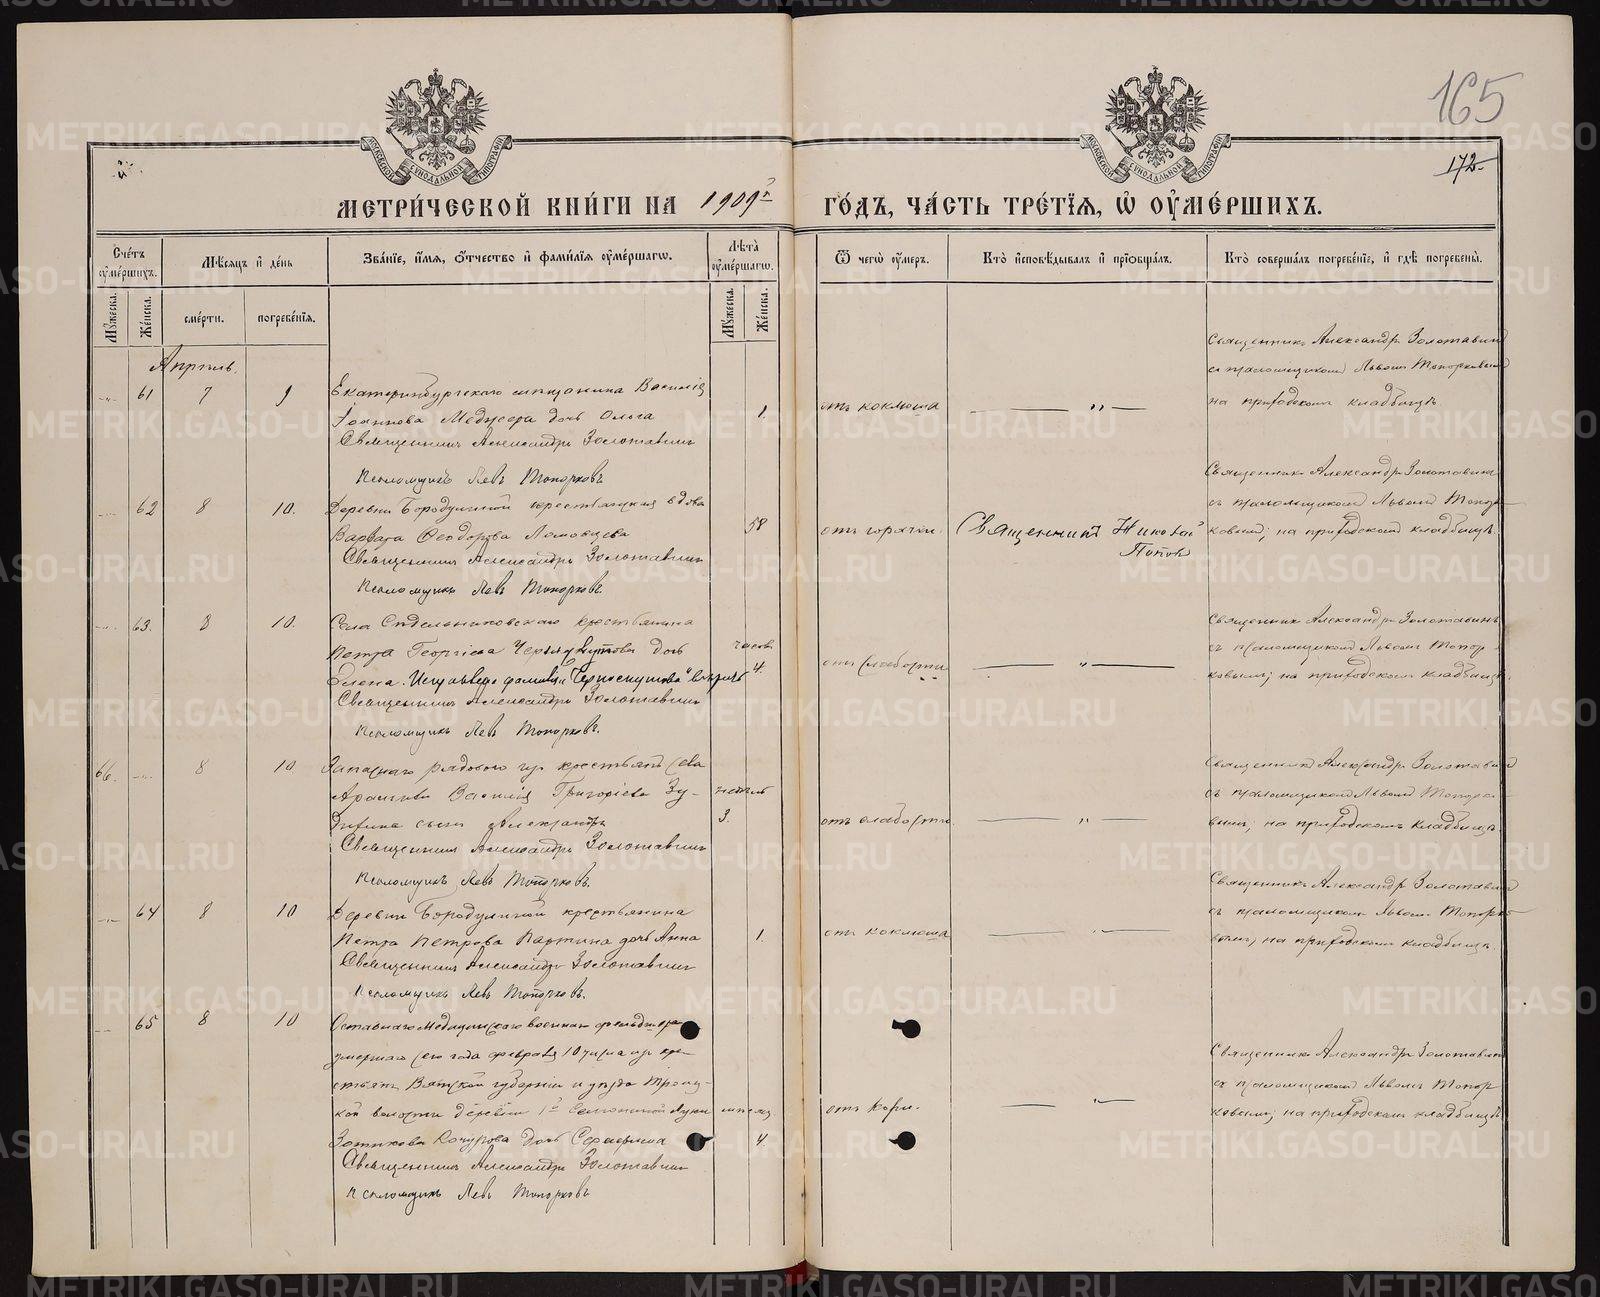 165
172
МОСКОВСКОЙ СѴНОДАЛЬНОЙ ТИПОГРАФІИ
МОСКОВСКОЙ СѴНОДАЛЬНОЙ ТИПОГРАФІИ
МЕТРИ́ЧЕСКОЙ КНИ́ГИ НА 1909й ГО́ДЪ, ЧА́СТЬ ТРЕ́ТІЯ, Ѡ҆ ОУ҆МЕ́РШИХЪ.
Сче́тъ оу҆ме́ршихъ.
Мѣ́сяцъ и҆ де́нь
Зва́ніе, и҆́мя, ѻ҆́тчество и҆ фами́лія оу҆ме́ршагѡ.
Лѣ́та оу҆ме́ршагѡ.
Ѿ чегѡ̀ оу҆́меръ.
Кто̀ и҆сповѣ́дывалъ и҆ прїѡбща́лъ.
Кто̀ соверша́лъ погребе́ніе, и҆ гдѣ̀ погребены̀.
Мꙋ́жеска. Же́нска. сме́рти. погребе́нія. Мꙋ́жеска. Же́нска.
Апрѣль.
61 7 9 Екатеринбургскаго мѣщанина Василія
Іоаннова дочь Ольга 1.
Священникъ Александръ Золотавинъ
Псаломщикъ Левъ Топорковъ
отъ коклюша
Священникъ Александръ Золотавинъ
съ псаломщикомъ Львомъ Топорковымъ
на приходскомъ кладбищѣ
62 8 10. Деревни Бородулиной крестьянская вдова
Варвара Ѳеодорова 58
Священникъ Александръ Золотавинъ
Псаломщикъ Левъ Топорковъ.
отъ горячки.
Священникъ Николай
Поповъ
Священникъ Александръ Золотавинъ
съ псаломщикомъ Львомъ Топор-
ковымъ; на приходскомъ кладбищѣ.
63. 8 10. Села крестьянина
Петра Георгіева дочь часовъ
Елена. фамилія "Черноскутова" вѣрно 4.
Священникъ Александръ Золотавинъ
Псаломщикъ Левъ Топорковъ.
отъ слабости
Священникъ Александръ Золотавинъ
съ псаломщикомъ Львомъ Топор-
ковымъ; на приходскомъ кладбищѣ.
66. 8 10 Запаснаго рядового изъ крестьянъ села
Василія Григоріева Зу- недѣль
сынъ Александръ 3.
Священникъ Александръ Золотавинъ
Псаломщикъ Левъ Топорковъ.
отъ слабости.
Священникъ Александръ Золотавинъ
съ псаломщикомъ Львомъ Топорко-
вымъ; на приходскомъ кладбищѣ.
64 8 10 Деревни Бородулиной крестьянина
Петра Петрова Партина дочь Анна 1.
Священникъ Александръ Золотавинъ
Псаломщикъ Левъ Топорковъ.
отъ коклюша
Священникъ Александръ Золотавинъ
съ псаломщикомъ Львомъ Топорко-
вымъ; на приходскомъ кладбищѣ.
65 8 10 Оставнаго Медицинскаго военнаго фельдшера
умершаго сего года февраля 10 числа изъ кре-
стьянъ Вятской губерніи и уѣзда Троиц-
кой волости деревни 1й Луки мѣсяц.
Зотикова Кочурова дочь Серафима 4.
Священникъ Александръ Золотавинъ
Псаломщикъ Левъ Топорковъ
отъ кори.
Священникъ Александръ Золотавинъ
съ псаломщикомъ Львомъ Топор-
ковымъ; на приходскомъ кладбищѣ
METRIKI.GASO-URAL.RU